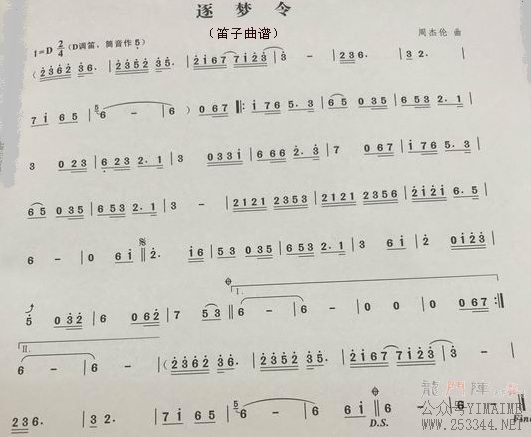 逐梦令
（笛子曲谱）
1=D 2/4 (D调笛，筒音作5)
周杰伦 曲
(2362 36. | 2352 35. | 2167 7123 | 3 - | 236. | 32. |
7 i 65 | 6 - | 6 ) 067 ‖: i 765.3 | 65 035 | 6532.1 |
3 023 | 6232.1 | 3 0333i | 6662.3 | 7 067 | i 765.3 |
65 035 | 6532.1 | 3 - | 2121 2353 | 2121 2356 | 2i2i 6.5 |
6 - | 0 6i ‖ 2. i6 | 53 0235 | 6532.1 | 3 6i | 2 0i23 |
5 032 | 6 062 | 7 53 | 6 - | 6 - | 0 0 | 0 067 :‖
I.
II.
6 - | 6 - | (2362 36. | 2352 35. | 2167 7123 | 3 - |
236. | 32. | 7 i 65 | 6 - | 6 6i ‖ 6 - | 6 - ‖
D.S.
Fine
公众号YIMAIME
www.253344.NET